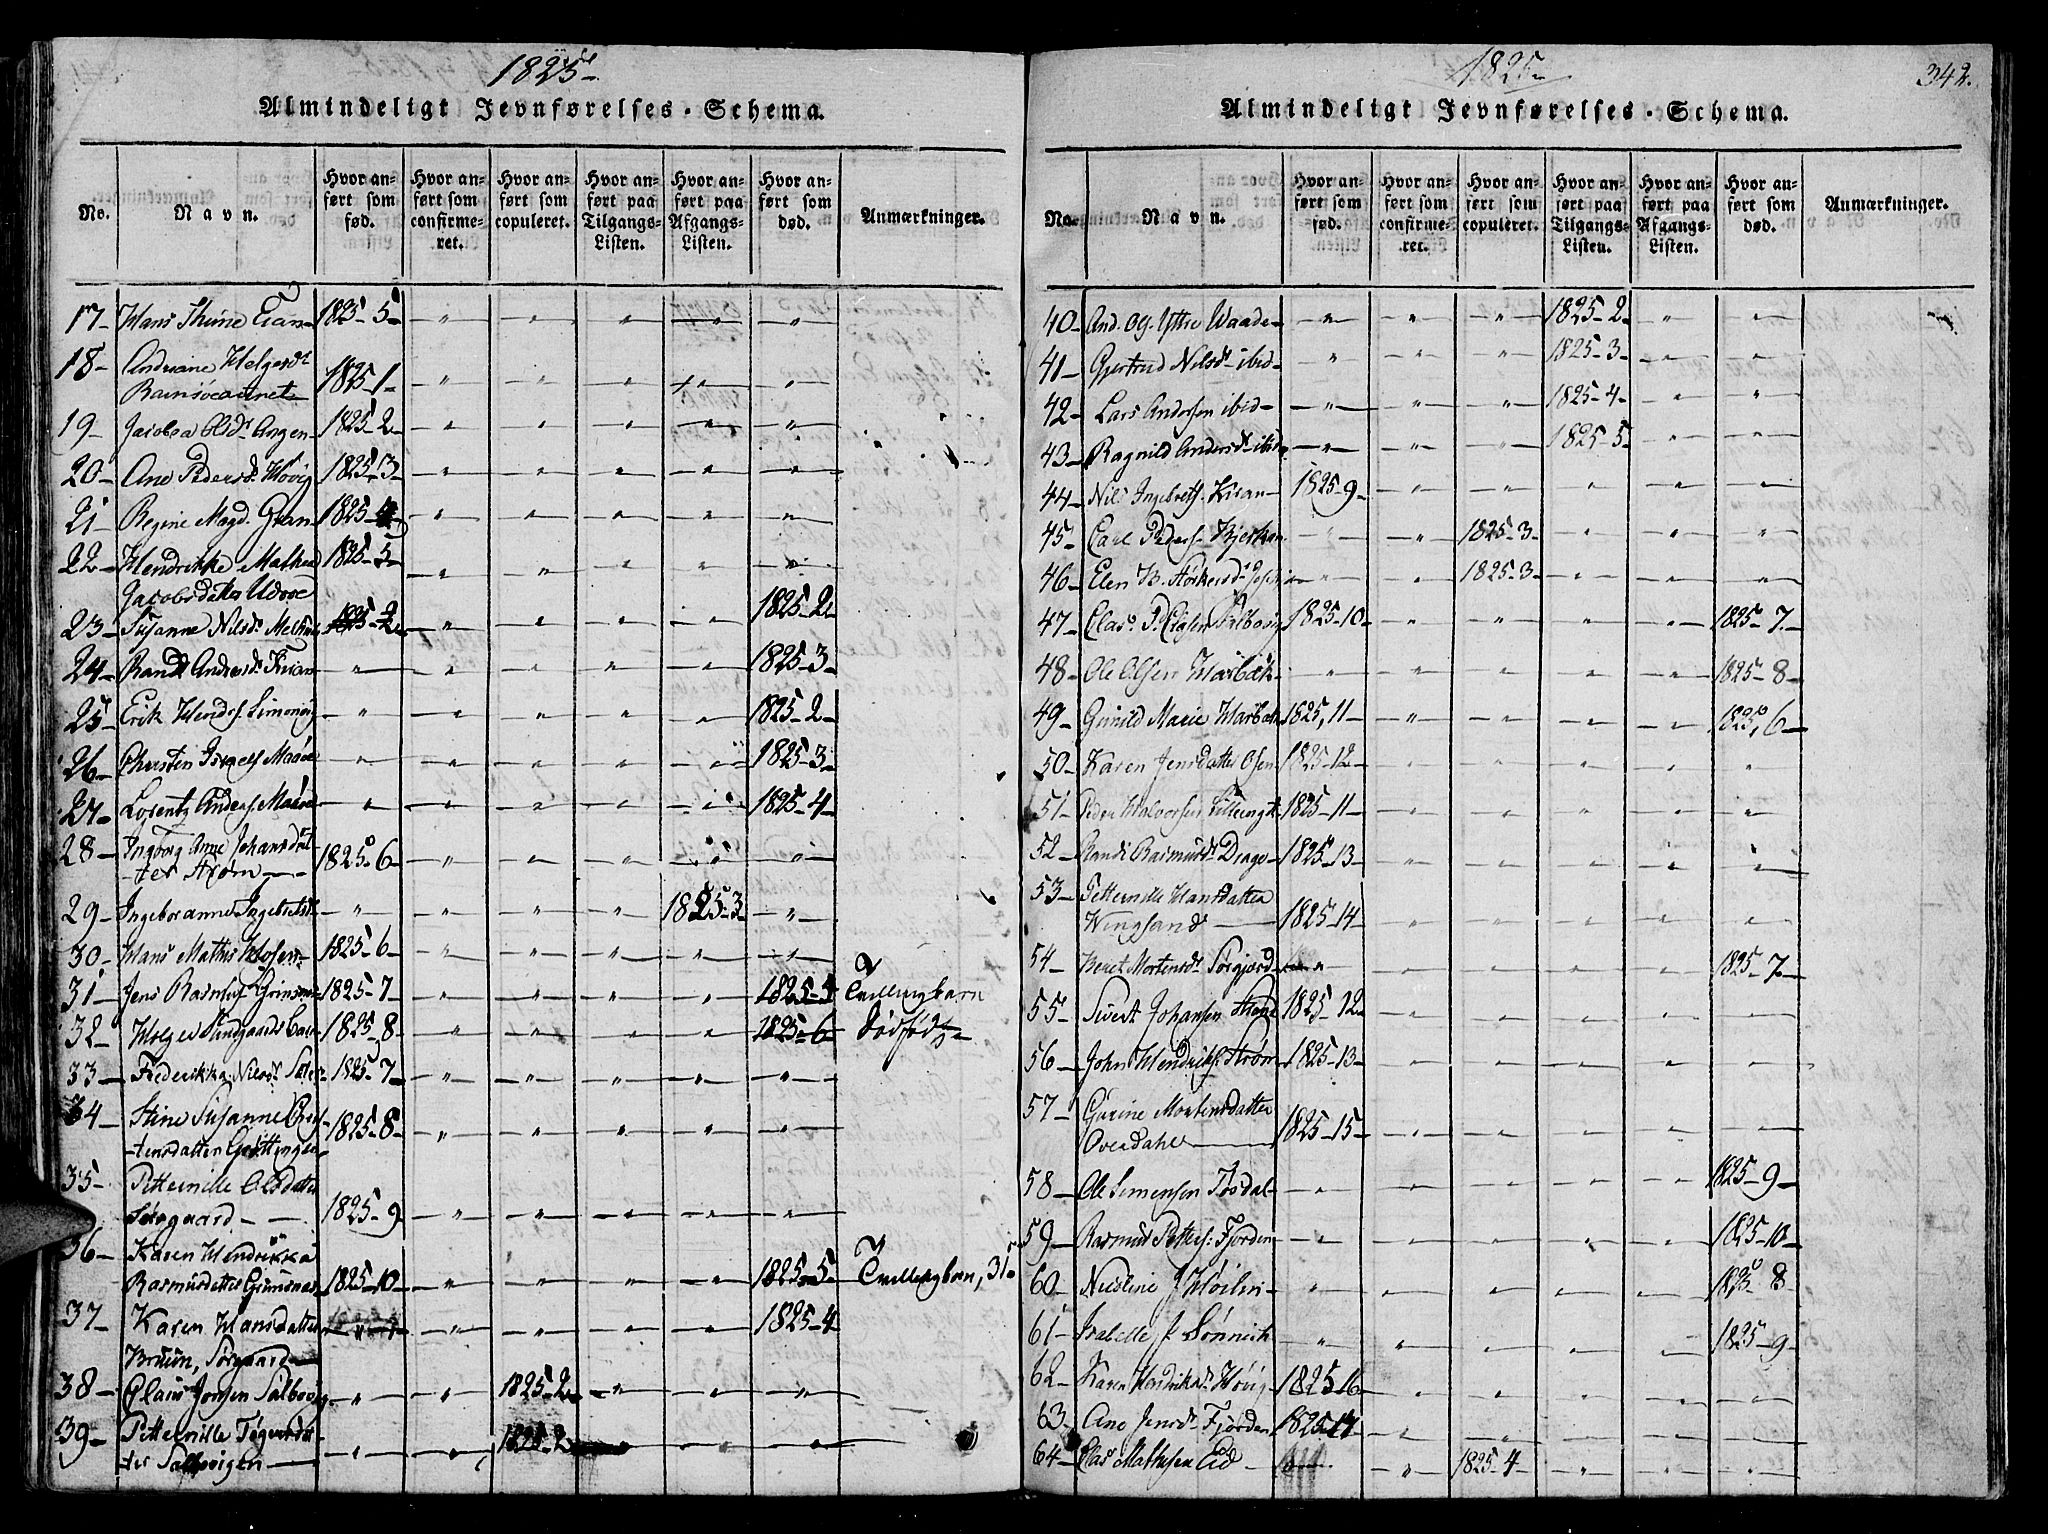 1825
Almindeligt Jevnførelses-Schema.
No. Navn. Hvor anført som fød. Hvor anført som confirmeret. Hvor anført som copuleret. Hvor anført paa Tilgangs-Listen. Hvor anført paa Afgangs-Listen. Hvor anført som død. Anmærkninger.
17- Hans Thune 1825-5
18- Andriane Helgesdr
1825-1
19- Jacobea Olsdr Angen- 1825-2
20- Ane Pedersdr Høvig 1825-3
21- Regine Magd. Gran 1825-4
22- Hendrikke Mathea 1825-5
Jacobsdatter Udvoe
23- Susanne Nilsdr 1825-2 1825-2
24- Randi Andersdr Kvian 1825-3
25- Erik Hends. Simonvig 1825-2
26- Christen Israels. Maaøe 1825-3
27- Lorentz Anders. Maaøe 1825-4
28- Ingborg Anne Johansdat-
ter Strøm- 1825-6
29- Ingeboranne Ingebretsdr 1825-3
30- Hans Mathis Hosen- 1825-6
31- Jens Rasmus. Grinsnes 1825-7 1825-5 Tvillingbarn
32- Holger Sundgaards 1825-8 1825-6 Dødfødt-
33- Frederikka Nilsdr 1825-7
34- Stine Susanne Chris-
tensdatter Grøttingen 1825-8
35- Pitternille Olsdatter
Sørgaard- 1825-9
36- Karen Hendrikka
Rasmusdatter Grinsnes 1825-10 1825-5 Tvillingbarn, 31
37- Karen Hansdatter 1825-4
Bruun, Sørgaard-
38- Claus Jonsen Salbovig 1825-2
39- Pitternille Tøgersdat-
ter Salbovigen- 1825-2
1825
342.
Almindeligt Jevnførelses-Schema.
No. Navn. Hvor anført som fød. Hvor anført som confirmeret. Hvor anført som copuleret. Hvor anført paa Tilgangs-Listen. Hvor anført paa Afgangs-Listen. Hvor anført som død. Anmærkninger.
40- And. Og. Yttre Waade- 1825-2
41- Gjertrud Nilsdr ibid- 1825-3
42- Lars Andersen ibid- 1825-4
43- Ragnild Andersdr ibid 1825-5
44- Nils Ingebrets. Kvian- 1825-9
45- Carl Peders. 1825-3
46- Elen B. Størkersdr 1825-3
47- Clas P. Salbovig 1825-10 1825-7
48- Ole Olsen Harbek- 1825-8
49- Gunild Marie Harbek 1825, 11 1825, 6
50- Karen Jensdatter Osen 1825-12
51- Peder Halvorsen 1825-11
52- Randi Rasmusdr Drage- 1825-13
53- Pitternille Hansdatter
Wingsand- 1825-14
54- Beret Mortensdr Sørgjerd 1825-7
55- Sivert Johansen 1825-12
56- John Hendriks. Strøm 1825-13
57- Gurine Mortensdatter
Overdahl- 1825-15
58- Ole Simensen Tøsdal- 1825-9
59- Rasmus Petters. Fjorden 1825-10
60- Nicoline J. 1825-8
61- Isabelle J. 1825-9
62- Karen Hendriksdr Høvig 1825-16
63- Ane Jensdr Fjorden 1825-17
64- Clas Mathisen Eid- 1825-4